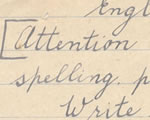 Engl
[Attention
spelling. p
Write